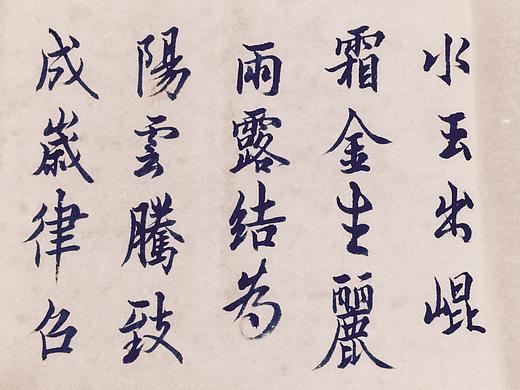 成歲律召
陽雲騰致
雨露結為
霜金生麗
水玉出崐